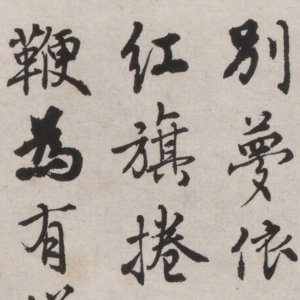 别夢依
红旗捲
鞭為有